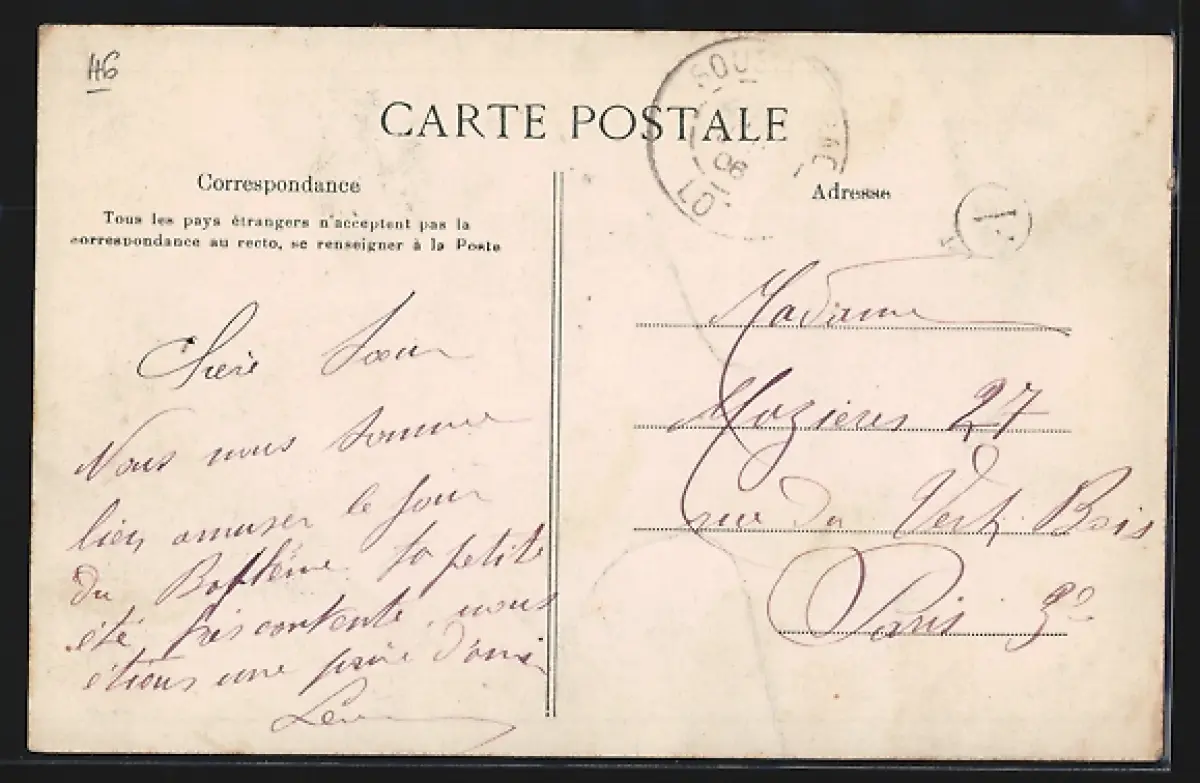 46
CARTE POSTALE
Correspondance
Tous les pays étrangers n'acceptent pas la
correspondance au recto, se renseigner à la Poste
Chère Soeur
Nous nous somme
bien amuser le jour
du Baptême ta petite
été très contente nous
étions une paire d'amis
Adresse
SOU
LOT
06
Madame
Mozieres 27
rue du Vert Bois
Paris 3e